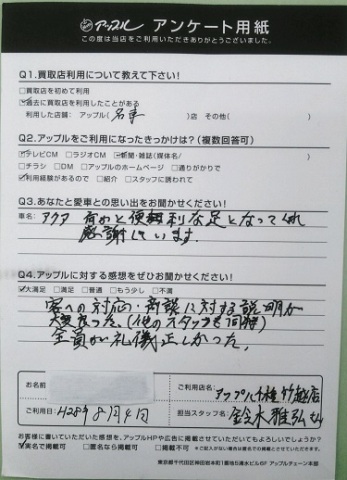 アップル アンケート用紙
この度は当店をご利用いただきありがとうございました。
Q1.買取店利用について教えて下さい!
□買取店を初めて利用
☑過去に買取店を利用したことがある
利用した店舗: アップル( )店 その他( )
Q2.アップルをご利用になったきっかけは?(複数回答可)
☑テレビCM □ラジオCM ☑新聞・雑誌(媒体名/ )
□チラシ □DM □アップルのホームページ □通りがかりで
☑利用経験があるので □紹介 □スタッフに誘われて
Q3.あなたと愛車との思い出をお聞かせください!
車名: アクア 有かと便利な足となってくれ
感謝しています.
Q4.アップルに対する感想をぜひお聞かせください!
☑大満足 □満足 □普通 □もう少し □不満
客への対応・商談に対する説明が
大変良った、(他のスタッフも同様)
全員が礼儀正しかった.
お名前
ご利用店名: アップル 竹越店
ご利用日: H28年8月4日
担当スタッフ名: 鈴木雅弘
お客様に書いていただいた感想を、アップルHPや広告に掲載させていただいてもよろしいでしょうか?
☑実名で掲載可 □匿名なら掲載可 □掲載不可 *ご記入がない場合は匿名での掲載可とさせていただきます。
東京都千代田区神田岩本町1番地5清水ビル6F アップルチェーン本部